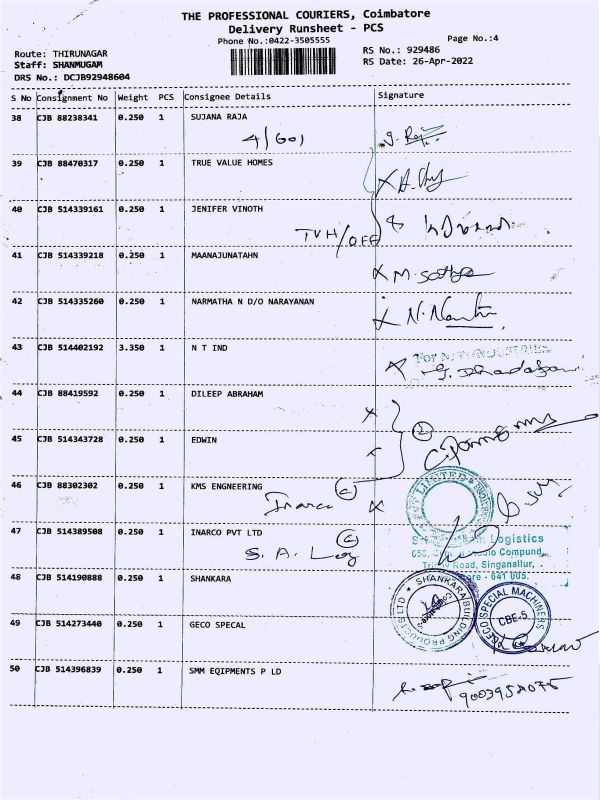 THE PROFESSIONAL COURIERS, Coimbatore
Delivery Runsheet - PCS
Phone No.:0422-3505555
Page No.:4
Route: THIRUNAGAR
RS No.: 929486
Staff: SHANMUGAM
RS Date: 26-Apr-2022
DRS No.: DCJB92948604
S No Consignment No Weight PCS Consignee Details Signature
38 CJB 88238341 0.250 1 SUJANA RAJA
4/601
39 CJB 88470317 0.250 1 TRUE VALUE HOMES
40 CJB 514339161 0.250 1 JENIFER VINOTH
TVH/OFF
41 CJB 514339218 0.250 1 MAANAJUNATAHN
M. Sathya
42 CJB 514335260 0.250 1 NARMATHA N D/O NARAYANAN
43 CJB 514402192 3.350 1 N T IND
For
44 CJB 88419592 0.250 1 DILEEP ABRAHAM
45 CJB 514343728 0.250 1 EDWIN
46 CJB 88302302 0.250 1 KMS ENGNEERING
Inarco
47 CJB 514389508 0.250 1 INARCO PVT LTD
S. A. Log
Logistics
Compund,
Road, Singanallur,
- 641 005.
48 CJB 514190888 0.250 1 SHANKARA
SHANKARA BUILDING PRODUCTS LTD
49 CJB 514273440 0.250 1 GECO SPECAL
GECO SPECIAL MACHINERS
CBE-5
50 CJB 514396839 0.250 1 SMM EQIPMENTS P LD